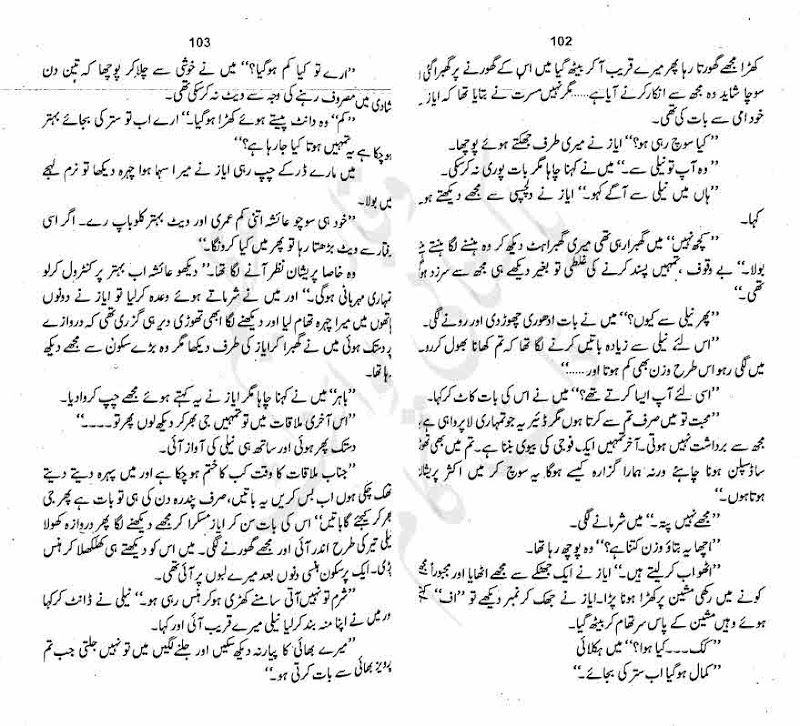 102
کھڑا مجھے گھورتا رہا پھر میرے قریب آ کر بیٹھ گیا میں اس کے گھورنے پر گھبرا گئی
سوچا شاید وہ مجھ سے انکار کرنے آیا ہے......مگر نہیں مسرت نے بتایا تھا کہ ایاز نے
خود امی سے بات کی تھی۔
”کیا سوچ رہی ہو؟“ ایاز نے میری طرف جھکتے ہوئے پوچھا۔
”وہ آپ تو نیلی سے۔“ میں نے کہنا چاہا مگر بات پوری نہ کر سکی۔
”ہاں میں نیلی سے آگے کہو۔“ ایاز نے دلچسپی سے مجھے دیکھتے ہو
کہا۔
”کچھ نہیں“ میں گھبرا رہی تھی میری گھبراہٹ دیکھ کر وہ ہنسنے لگا ہنستے ہنستے
بولا۔“ بے وقوف، تمہیں پسند کرنے کی غلطی تو بغیر دیکھے ہی مجھ سے سرزد ہو
تھی۔“
”پھر نیلی سے کیوں؟“ میں نے بات ادھوری چھوڑ دی اور رونے لگی۔
”اس لئے نیلی سے زیادہ باتیں کرنے لگا تھا کہ تم کھانا بھول کر رو۔
میں لگی رہو اس طرح وزن بھی کم ہوتا اور......“
”اسی لئے آپ ایسا کرتے تھے؟“ میں نے اس کی بات کاٹ کر کہا۔
”محبت تو میں صرف تم سے کرتا ہوں مگر ڈئیر یہ جو تمہاری لا پرواہی ہے،
مجھ سے برداشت نہیں ہوتی۔ آخر تمہیں ایک فوجی کی بیوی بننا ہے۔ تم میں بھی تھوڑ
سا ڈسپلن ہونا چاہئے ورنہ ہمارا گزارہ کیسے ہوگا یہ سوچ کر میں اکثر پریشان
ہوتا ہوں۔“
”مجھے نہیں پتہ۔“ میں شرمانے لگی۔
”اچھا یہ بتاؤ وزن کتنا ہے؟“ وہ پوچھ رہا تھا۔
”اٹھو اب کر لیتے ہیں۔“ ایاز نے ایک جھٹکے سے مجھے اٹھایا اور مجبوراً مجھے
کونے میں رکھی مشین پر کھڑا ہونا پڑا۔ ایاز نے جھک کر نمبر دیکھے تو ”اف“ کہتے
ہوئے وہیں مشین کے پاس سر تھام کر بیٹھ گیا۔
”کک۔۔۔کیا ہوا؟“ میں ہکلائی
”کمال ہو گیا اب ستر کی بجائے۔“
103
”ارے تو کیا کم ہو گیا؟“ میں نے خوشی سے چلا کر پوچھا کہ تین دن
شادی میں مصروف رہنے کی وجہ سے ویٹ نہ کر سکی تھی۔
”کم“ وہ دانت پیستے ہوئے کھڑا ہو گیا۔“ ارے اب تو ستر کی بجائے بہتر
ہو چکا ہے یہ تمہیں ہوتا کیا جا رہا ہے؟“
میں مارے ڈر کے چپ رہی ایاز نے میرا سہما ہوا چہرہ دیکھا تو نرم لہجے
میں بولا۔
”خود ہی سوچو عائشہ اتنی کم عمری اور ویٹ بہتر کلو باپ رے۔ اگر اسی
رفتار سے ویٹ بڑھتا رہا تو پھر میں کیا کرونگا۔“
وہ خاصا پریشان نظر آنے لگا تھا۔“ دیکھو عائشہ اب بہتر پر کنٹرول کر لو
تمہاری مہربانی ہوگی۔“ اور میں نے شرماتے ہوئے وعدہ کر لیا تو ایاز نے دونوں
ہاتھوں میں میرا چہرہ تھام لیا اور دیکھنے لگا ابھی تھوڑی دیر ہی گزری تھی کہ دروازے
پر دستک ہوئی میں نے گھبرا کر ایاز کی طرف دیکھا مگر وہ بڑے سکون سے مجھے دیکھ
رہا تھا۔
”باہر“ میں نے کہنا چاہا مگر ایاز نے یہ کہتے ہوئے مجھے چپ کروا دیا۔
”اس آخری ملاقات میں تو تمہیں جی بھر کر دیکھ لوں پھر تو۔۔۔۔“
دستک پھر ہوئی اور ساتھ ہی نیلی کی آواز آئی۔
”جناب ملاقات کا وقت کب کا ختم ہو چکا ہے اور میں پہرہ دیتے دیتے
تھک چکی ہوں اب بس کریں یہ باتیں، صرف پندرہ دن کی ہی تو بات ہے پھر جی
بھر کر کیجئے گا باتیں“ اس کی بات سن کر ایاز مسکرا کر مجھے دیکھنے لگا پھر دروازہ کھولا
نیلی تیر کی طرح اندر آئی اور مجھے گھورنے لگی۔ میں اس کو دیکھتے ہی کھلکھلا کر ہنس
پڑی۔ ایک پر سکون ہنسی دنوں بعد میرے لبوں پر آئی تھی۔
”شرم تو نہیں آتی سامنے کھڑی ہو کر ہنس رہی ہو۔“ نیلی نے ڈانٹ کر کہا
ور میں نے اپنا منہ بند کر لیا نیلی میرے قریب آئی اور کہا۔
”میرے بھائی کا پیار نہ دیکھ سکیں اور جلنے لگیں میں تو نہیں جلتی جب تم
پرویز بھائی سے بات کرتی ہو۔“